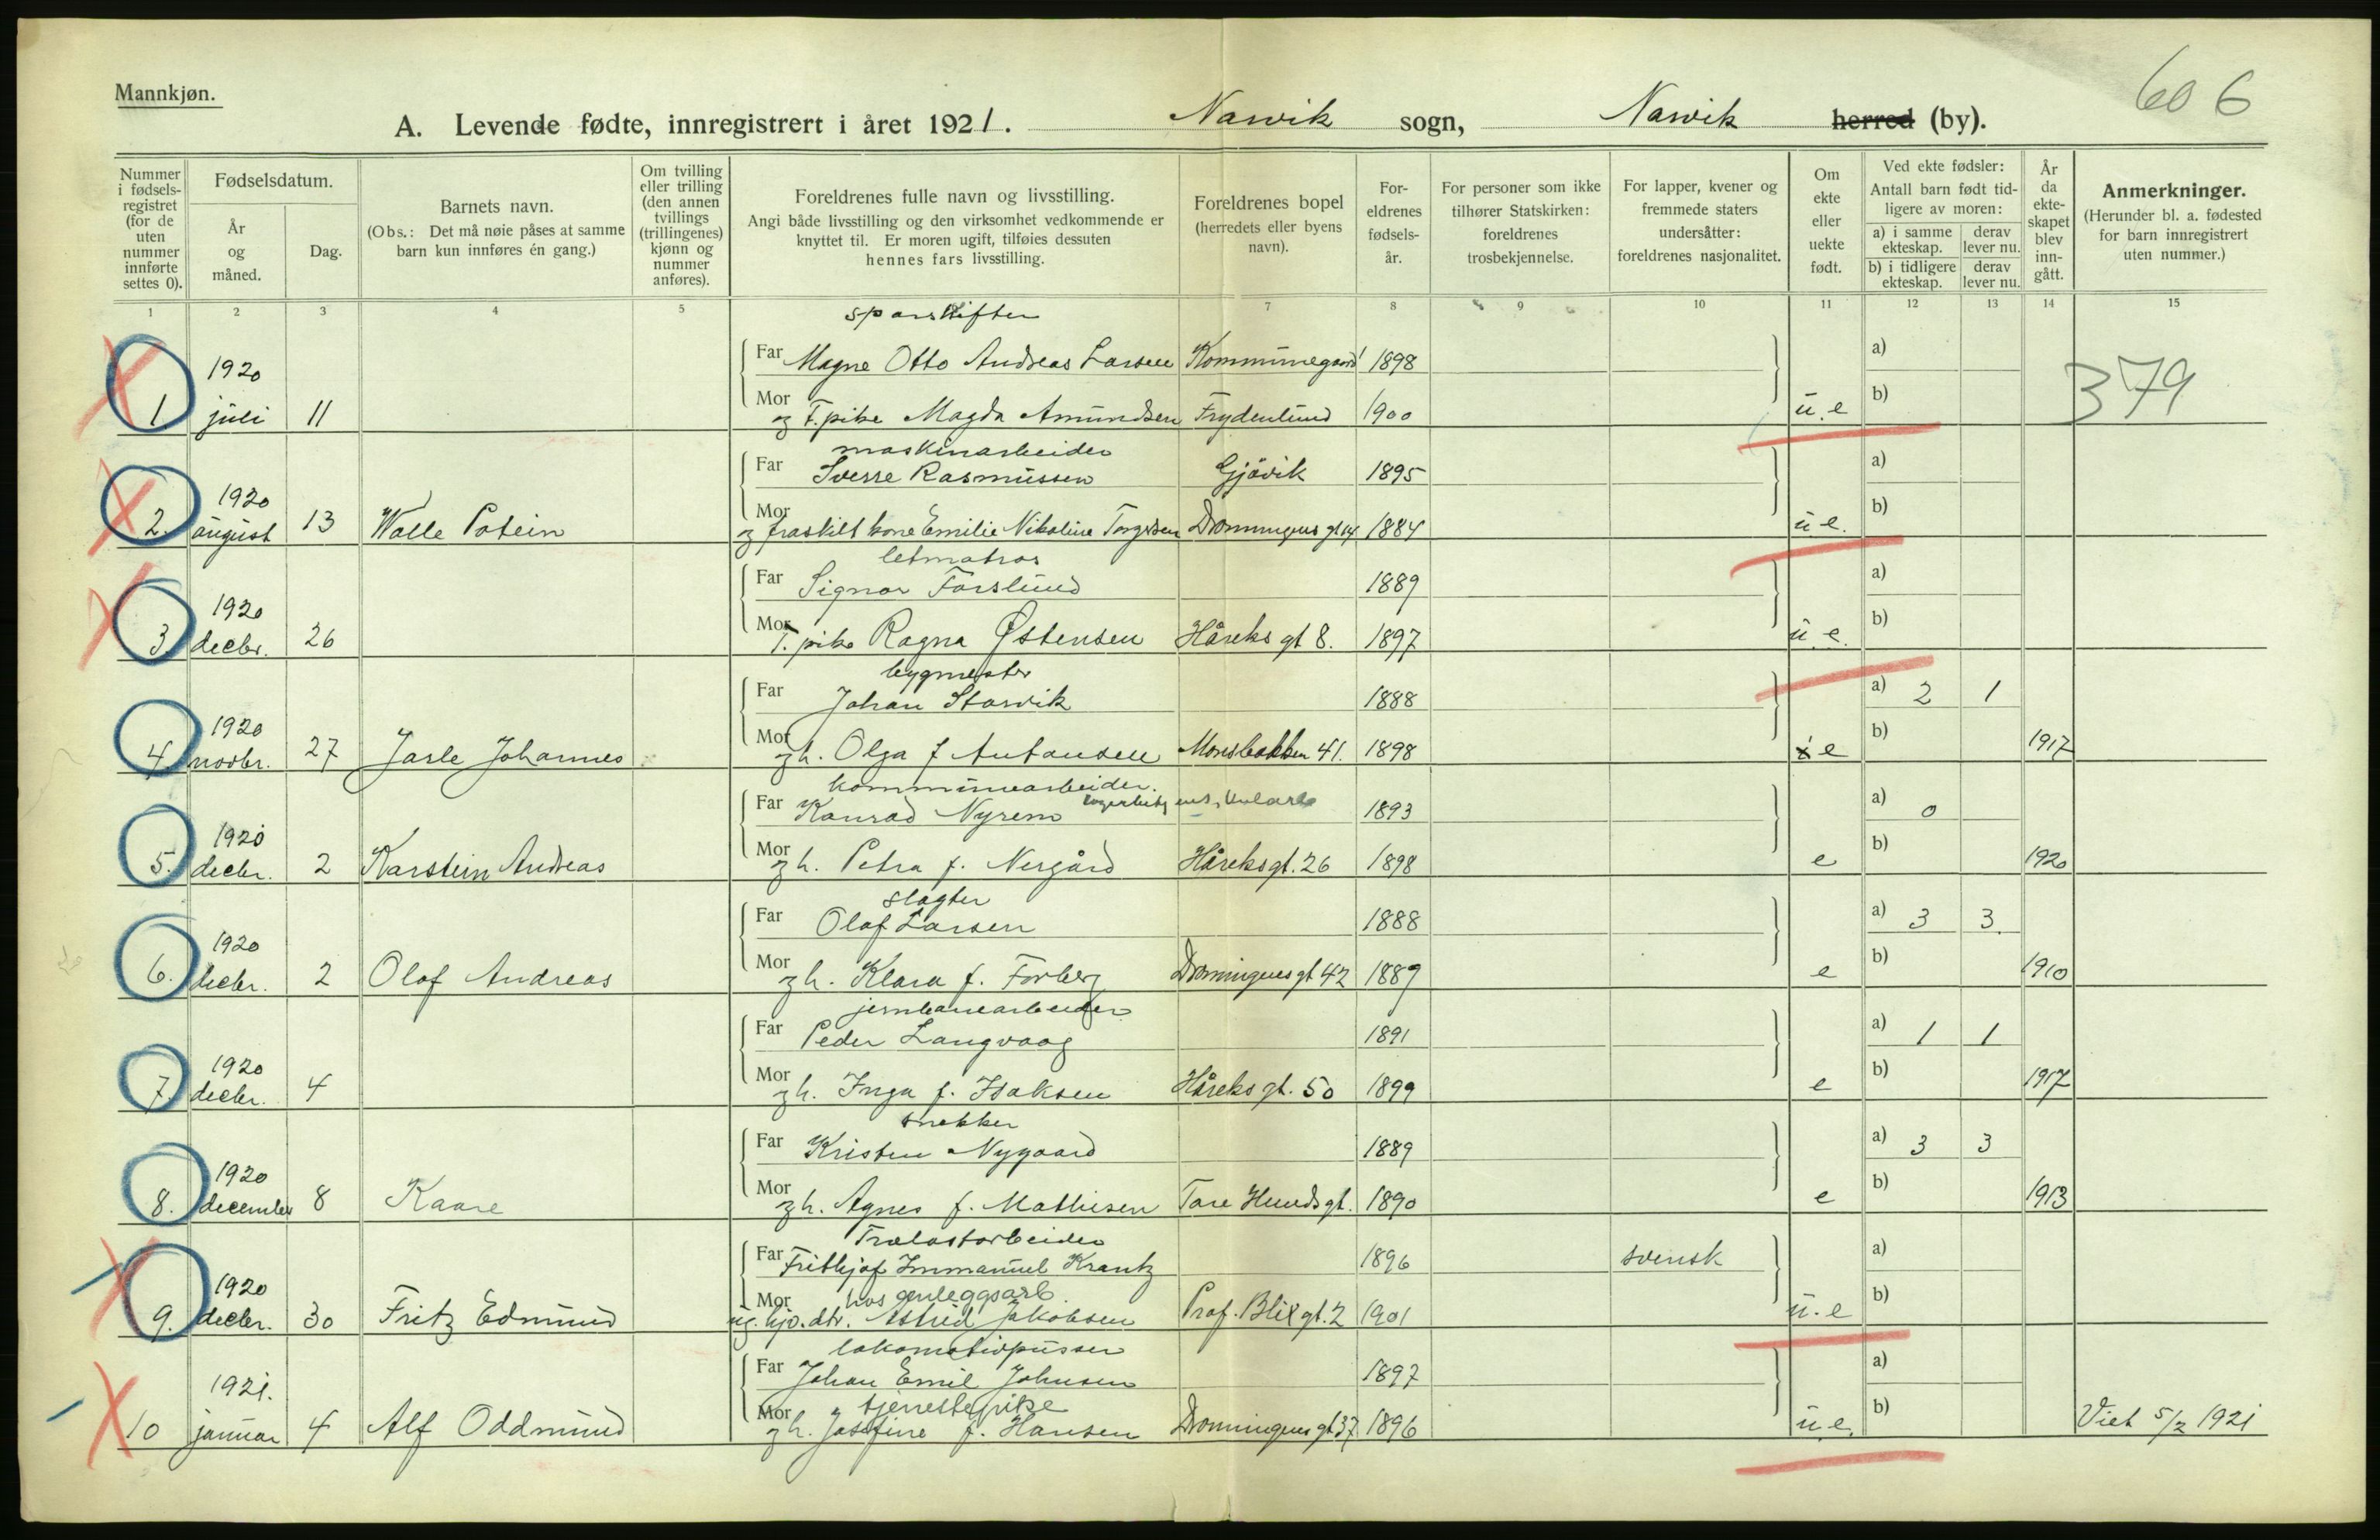 Mannkjøn.
606
A. Levende fødte, innregistrert i året 1921. Narvik sogn, Narvik herred (by).
Nummer i fødsels-registret (for de uten nummer innførte settes 0).
Fødselsdatum.
År og måned.
Dag.
Barnets navn.
(Obs.: Det må nøie påses at samme barn kun innføres én gang.)
Om tvilling eller trilling (den annen tvillings (trillingenes) kjønn og nummer anføres).
Foreldrenes fulle navn og livsstilling.
Angi både livsstilling og den virksomhet vedkommende er knyttet til. Er moren ugift, tilføies dessuten hennes fars livsstilling.
Foreldrenes bopel (herredets eller byens navn).
For-eldrenes fødsels-år.
For personer som ikke tilhører Statskirken: foreldrenes trosbekjennelse.
For lapper, kvener og fremmede staters undersåtter: foreldrenes nasjonalitet.
Om ekte eller uekte født.
Ved ekte fødsler:
Antall barn født tid-ligere av moren:
a) i samme ekteskap. derav lever nu.
b) i tidligere ekteskap. derav lever nu.
År da ekte-skapet blev inn-gått.
Anmerkninger.
(Herunder bl. a. fødested for barn innregistrert uten nummer.)
1 2 3 4 5 7 8 9 10 11 12 13 14 15
sporskifter
Far Magne Otto Andreas Larsen Kommunegaard 1898 a)
1 1920 juli 11 Mor og T. pike Magda Amundsen Frydenlund 1900 u. e b)
379
maskinarbeider
Far Sverre Rasmussen Gjövik 1895 a)
2. 1920 august 13 Walle Potein Mor og fraskilt kone Emilie Nikoline Torgersen Dronningens gt 14. 1884 u e. b)
letmatros
Far Signar Forslund 1889 a)
3. 1920 decbr. 26 Mor T. pike Ragna Østensen Håreks gt 8. 1897 u e. b)
bygmester
Far Johan Storvik 1888 a) 2 1
4. 1920 novbr. 27 Jarle Johannes Mor og h. Olga f Antonsen Monsbakken 41. 1898 e b) 1917
kommunearbeider.
Far Konrad Nyrem 1893 a) 0
5. 1920 decbr. 2 Karstein Andreas Mor og h. Petra f. Nergård Håreks gt. 26 1898 e b) 1920
slagter
Far Olaf Larsen 1888 a) 3 3.
6. 1920 decbr. 2 Olaf Andreas Mor og h. Klara f. Forberg Dronningens gt 42 1889 e b) 1910
jernbanearbeider
Far Peder Langvaag 1891 a) 1 1
7. 1920 decbr. 4 Mor og h. Inga f. Isaksen Håreks gt. 50 1899 e b) 1917
snekker
Far Kristen Nygaard 1889 a) 3 3
8. 1920 december 8 Kaare Mor og h. Agnes f. Mathisen Tore Hunds gt. 1890 e b) 1913
Trælastarbeider
Far Frithjof Immanuel Krantz 1896 svensk a)
hos anleggsarb.
9. 1920 decbr. 30 Fritz Edmund Mor ug. hjo. dtr. Astrid Jakobsen Prof. Blix gt. 2 1901 u. e b)
lokomotivpusser
Far Johan Emil Johnsen 1897 a)
tjenestepike
10 1921. januar 4 Alf Oddmund Mor og h. Josefine f. Hansen Dronningens gt 37 1896 u e. b) Viet 5/2 1921